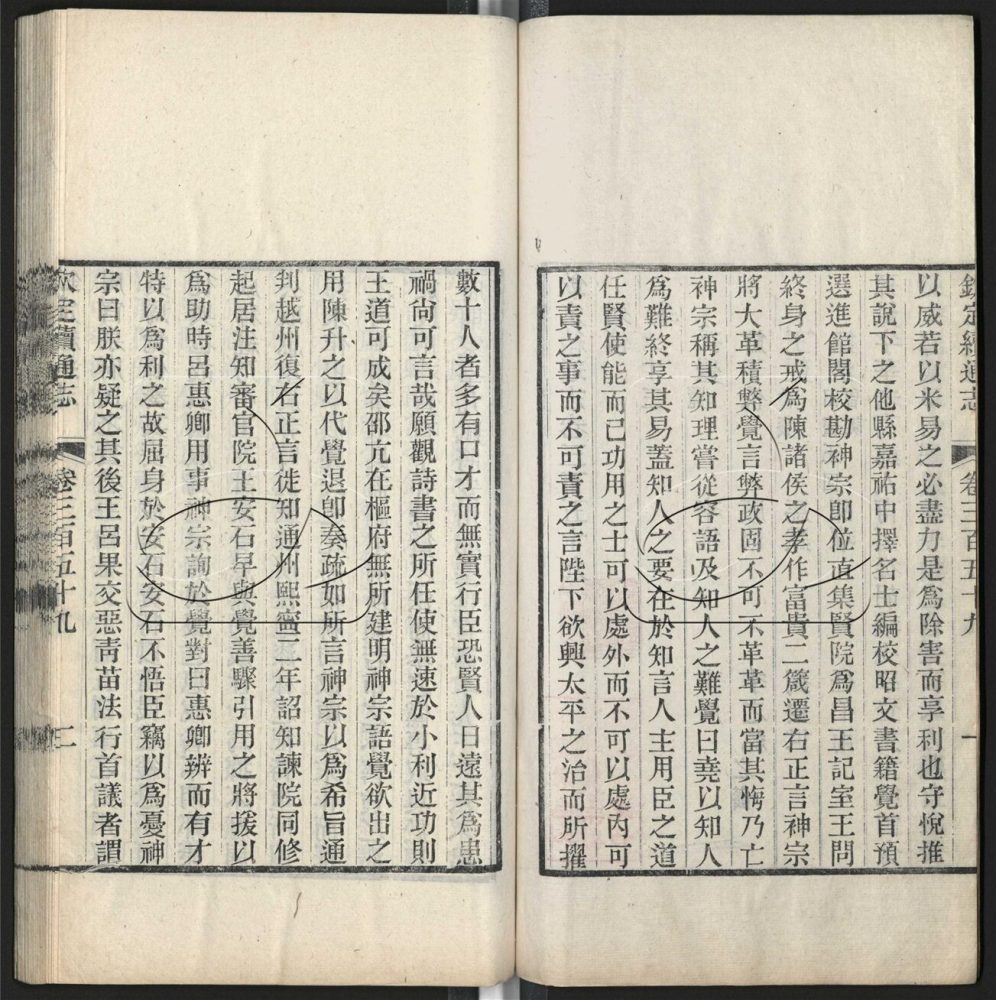 欽定續通志 卷三百五十九 一
以威若以米易之必盡力是爲除害而享利也守悅推
其說下之他縣嘉祐中擇名士編校昭文書籍覺首預
選進館閣校勘神宗卽位直集賢院爲昌王記室王問
終身之戒爲陳諸侯之孝作富貴二箴遷右正言神宗
將大革積弊覺言弊政固不可不革革而當其悔乃亡
神宗稱其知理嘗從容語及知人之難覺曰堯以知人
爲難終享其易蓋知人之要在於知言人主用臣之道
任賢使能而已功用之士可以處外而不可以處內可
以責之事而不可責之言陛下欲興太平之治而所擢
數十人者多有口才而無實行臣恐賢人日遠其爲患
禍尙可言哉願觀詩書之所任使無速於小利近功則
王道可成矣邵亢在樞府無所建明神宗語覺欲出之
用陳升之以代覺退卽奏疏如所言神宗以爲希旨通
判越州復右正言徙知通州熙寧二年詔知諫院同修
起居注知審官院王安石早與覺善驟引用之將援以
爲助時呂惠卿用事神宗詢於覺對曰惠卿辨而有才
特以爲利之故屈身於安石安石不悟臣竊以爲憂神
宗曰朕亦疑之其後王呂果交惡靑苗法行首議者謂
欽定續通志 卷三百五十九 二